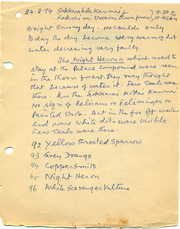 24-2-74 Sakkarakkakanmai } 7-30 am
Lakshmi Vavaru Thorn forest } 10-45 am
Bright Sunny day - no clouds only
B day the day became very warm & hot
water decreasing very fastly.
The Night Herons which used to
stay at the Palace Compound were then
in the thorn forest. They may thought
that because of water it. Few Teals were
there. In the Sakkarai Kottai Kanmai
No sign of Pelicans or Flamingoes or
Painted Stork. But in the far off water
end some white dots were visible
Few Teals were there.
92 Yellow Throated Sparrow
93 Grey Drongo
94 Coppersmith
95 Night Heron
96 White Scavenger Vulture